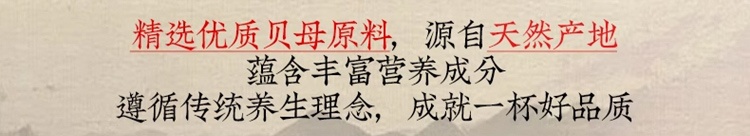 精选优质贝母原料，源自天然产地
蕴含丰富营养成分
遵循传统养生理念，成就一杯好品质